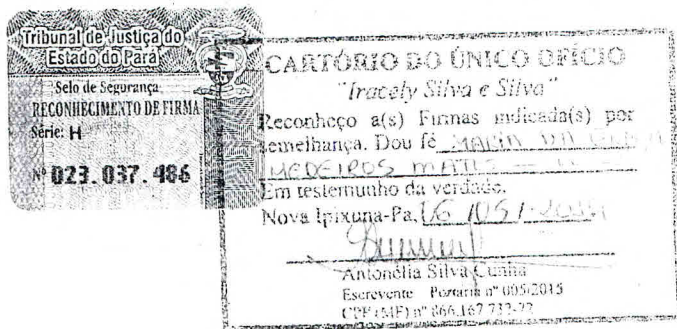 Tribunal de Justiça do
Estado do Pará
Selo de Segurança
RECONHECIMENTO DE FIRMA
Série: H
Nº 023.037.486
CARTÓRIO DO ÚNICO OFÍCIO
"Iracely Silva e Silva"
Reconheço a(s) Firmas indicada(s) por
semelhança. Dou fé MARIA DA
MEDEIROS
Em testemunho da verdade.
Nova Ipixuna-Pa,
Antonélia Silva Cunha
Escrevente Portaria nº 005/2015
CPF (MF) nº 866.167.732-